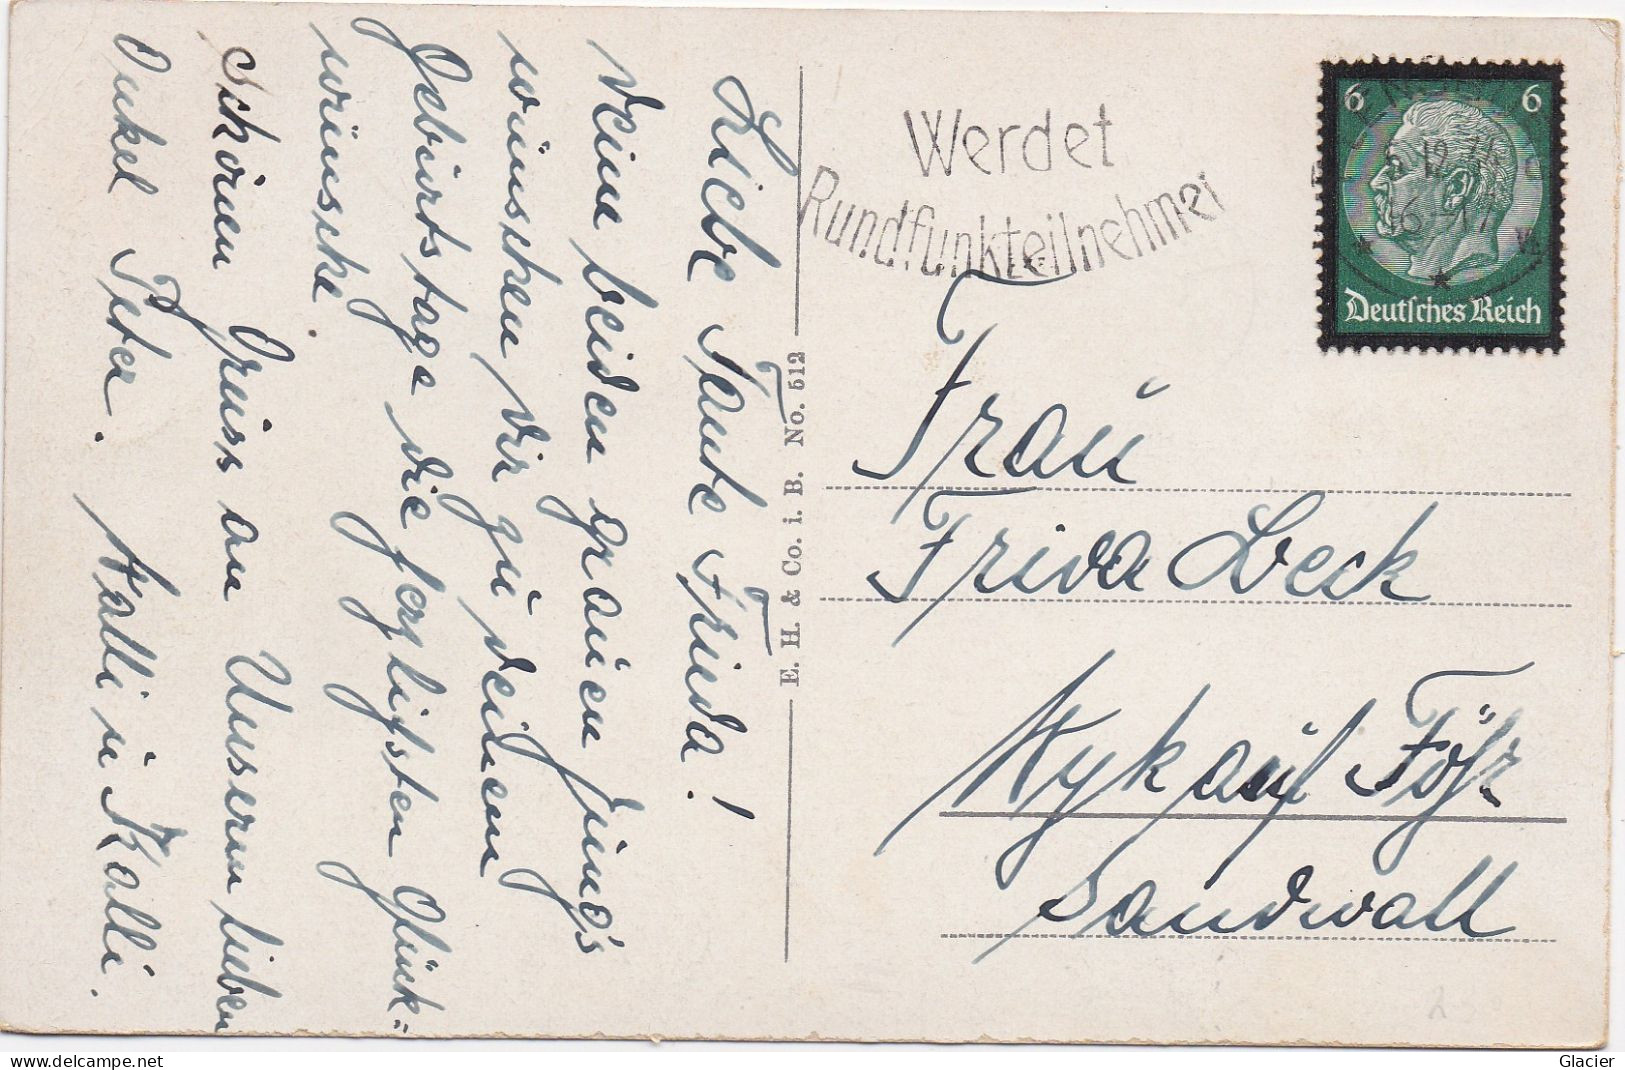 Liebe Tante Frieda!
Deine beiden grauen Jung's
wünschen Dir zu deinem
Geburtstage die herzlichsten Glück=
wünsche.
Schönen Gruss an Unserm lieben
Onkel Peter. Walli u Kalli.
E. H. & Co. i. B. No. 512
Werdet
Rundfunkteilnehmer
6 6
Deutsches Reich
Frau
Frieda Beck
Wyk auf Föhr
Sandwall
delcampe.net
Glacier